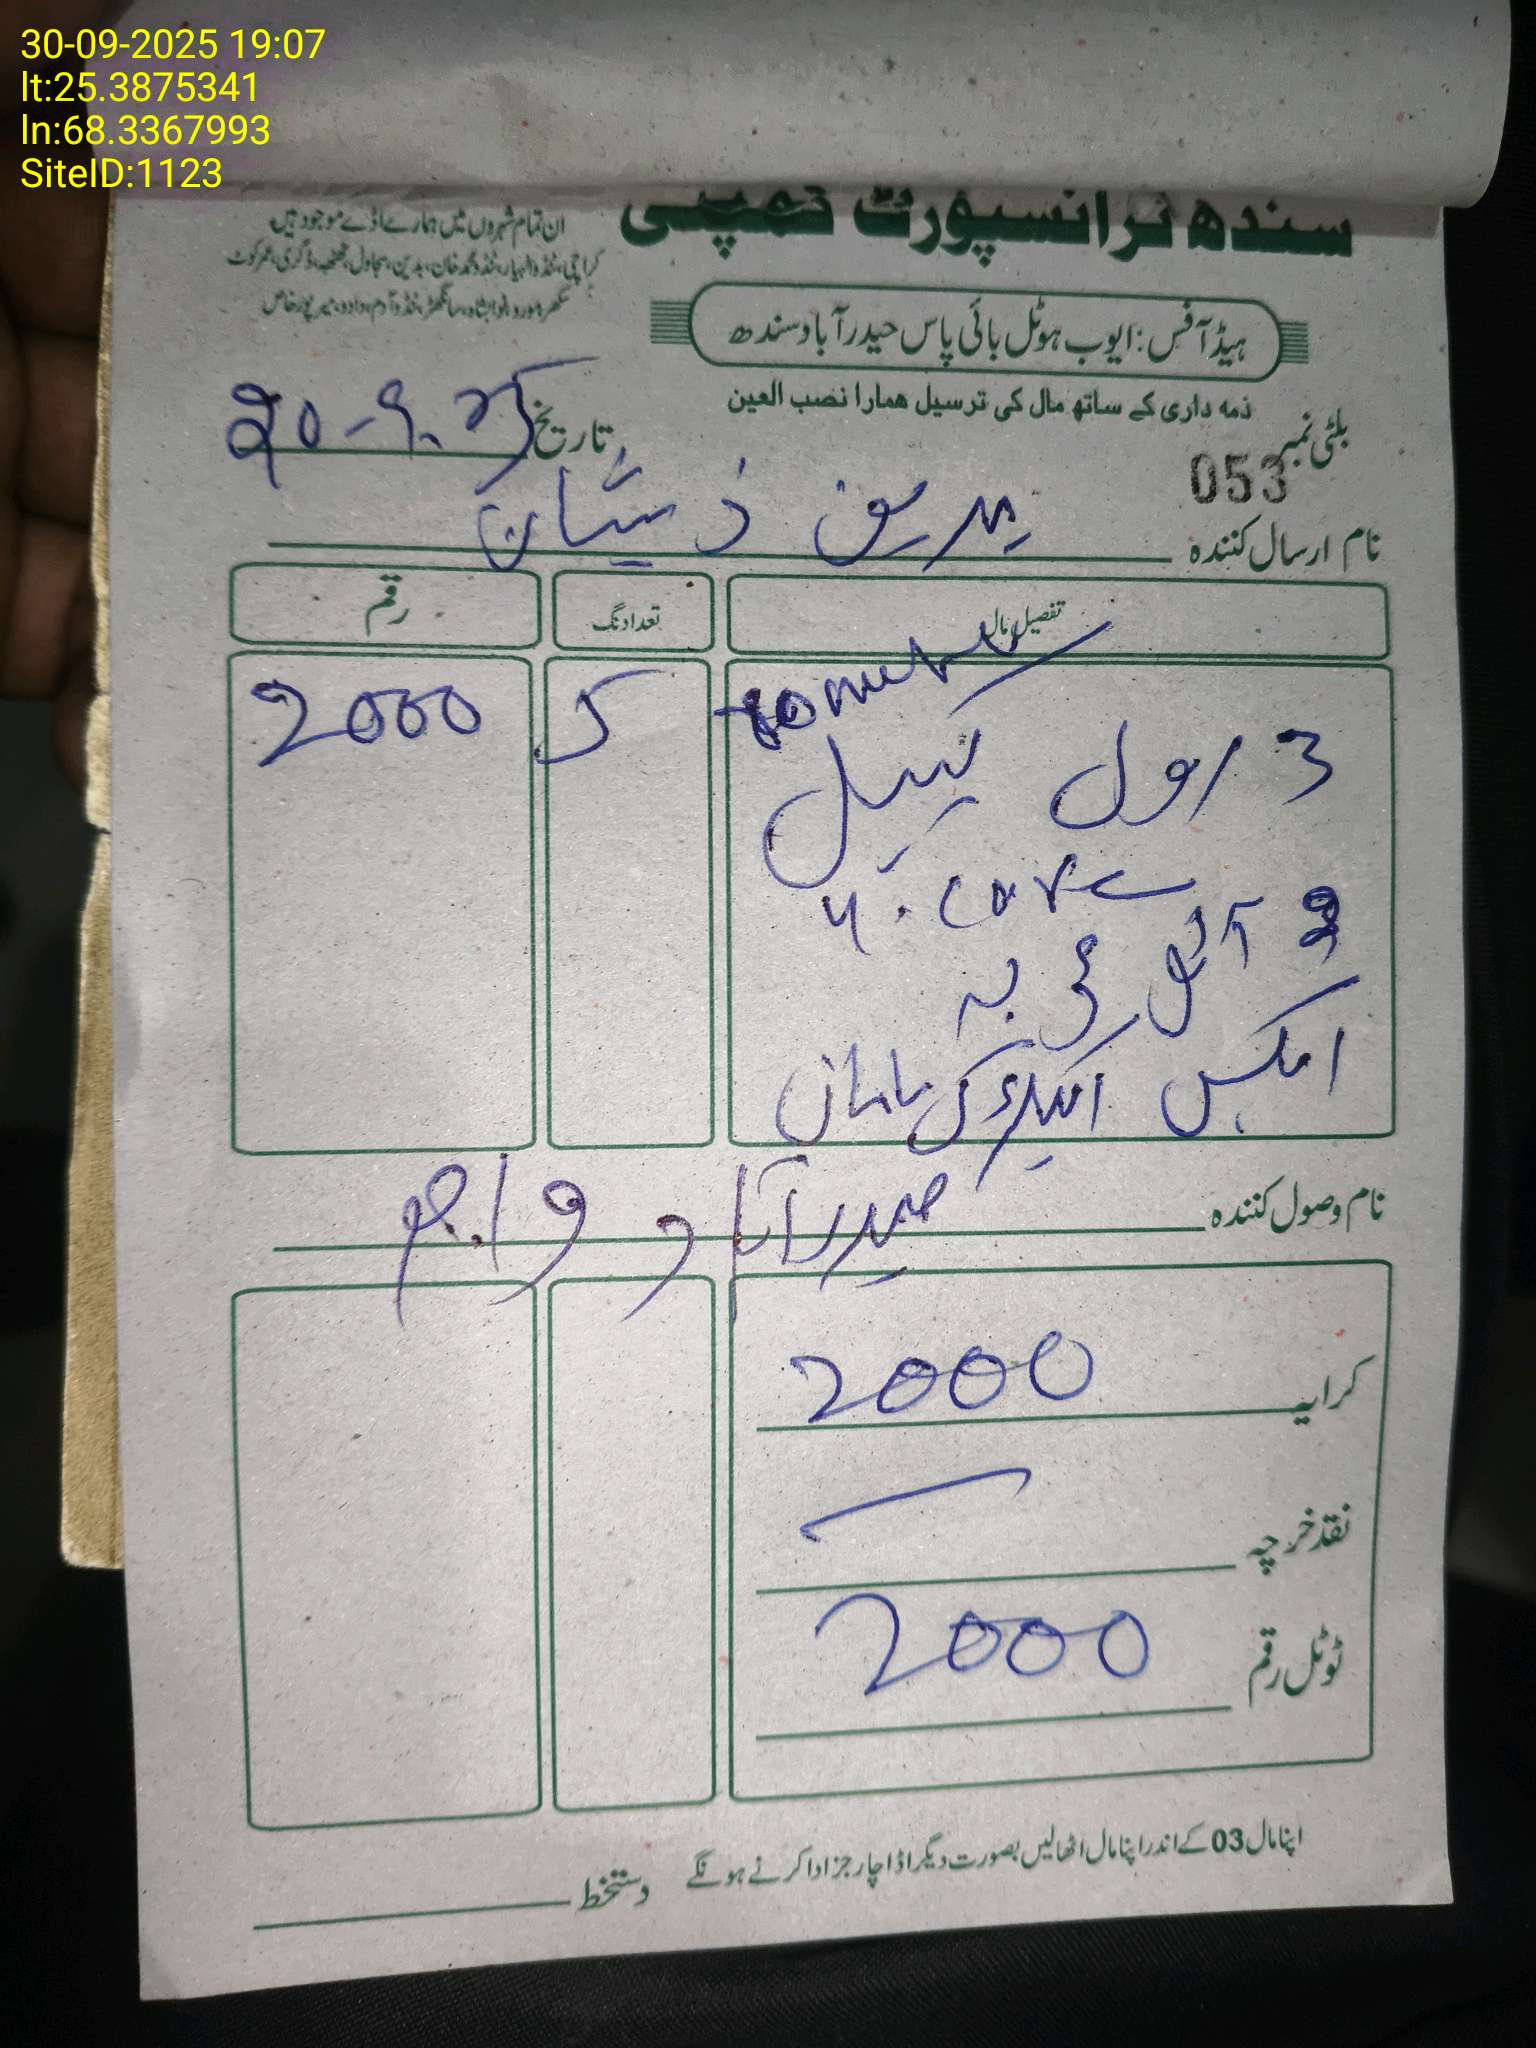 30-09-2025 19:07
lt:25.3875341
ln:68.3367993
SiteID:1123
سندھ ٹرانسپورٹ کمپنی
ان تمام شہروں میں ہمارے اڈے موجود ہیں
کراچی، ٹنڈوالہیار، ٹنڈو محمد خان، بدین، سجاول، ٹھٹھہ، ڈگری، عمرکوٹ
سکھر، مورو، نوابشاہ، سانگھڑ، ٹنڈوآدم، دادو، میرپورخاص
ہیڈ آفس: ایوب ہوٹل بائی پاس حیدرآباد سندھ
ذمہ داری کے ساتھ مال کی ترسیل ھمارا نصب العین
بلٹی نمبر 053
تاریخ
نام ارسال کنندہ ذیشان
تفصیل مال تعداد نگ رقم
5 2000
3 رول کیبل
4. core
حیدرآباد
نام وصول کنندہ
کرایہ 2000
نقد خرچہ
ٹوٹل رقم 2000
اپنا مال 03 کے اندر اپنا مال اٹھالیں بصورت دیگر اڈا چارجز ادا کرنے ہونگے
دستخط